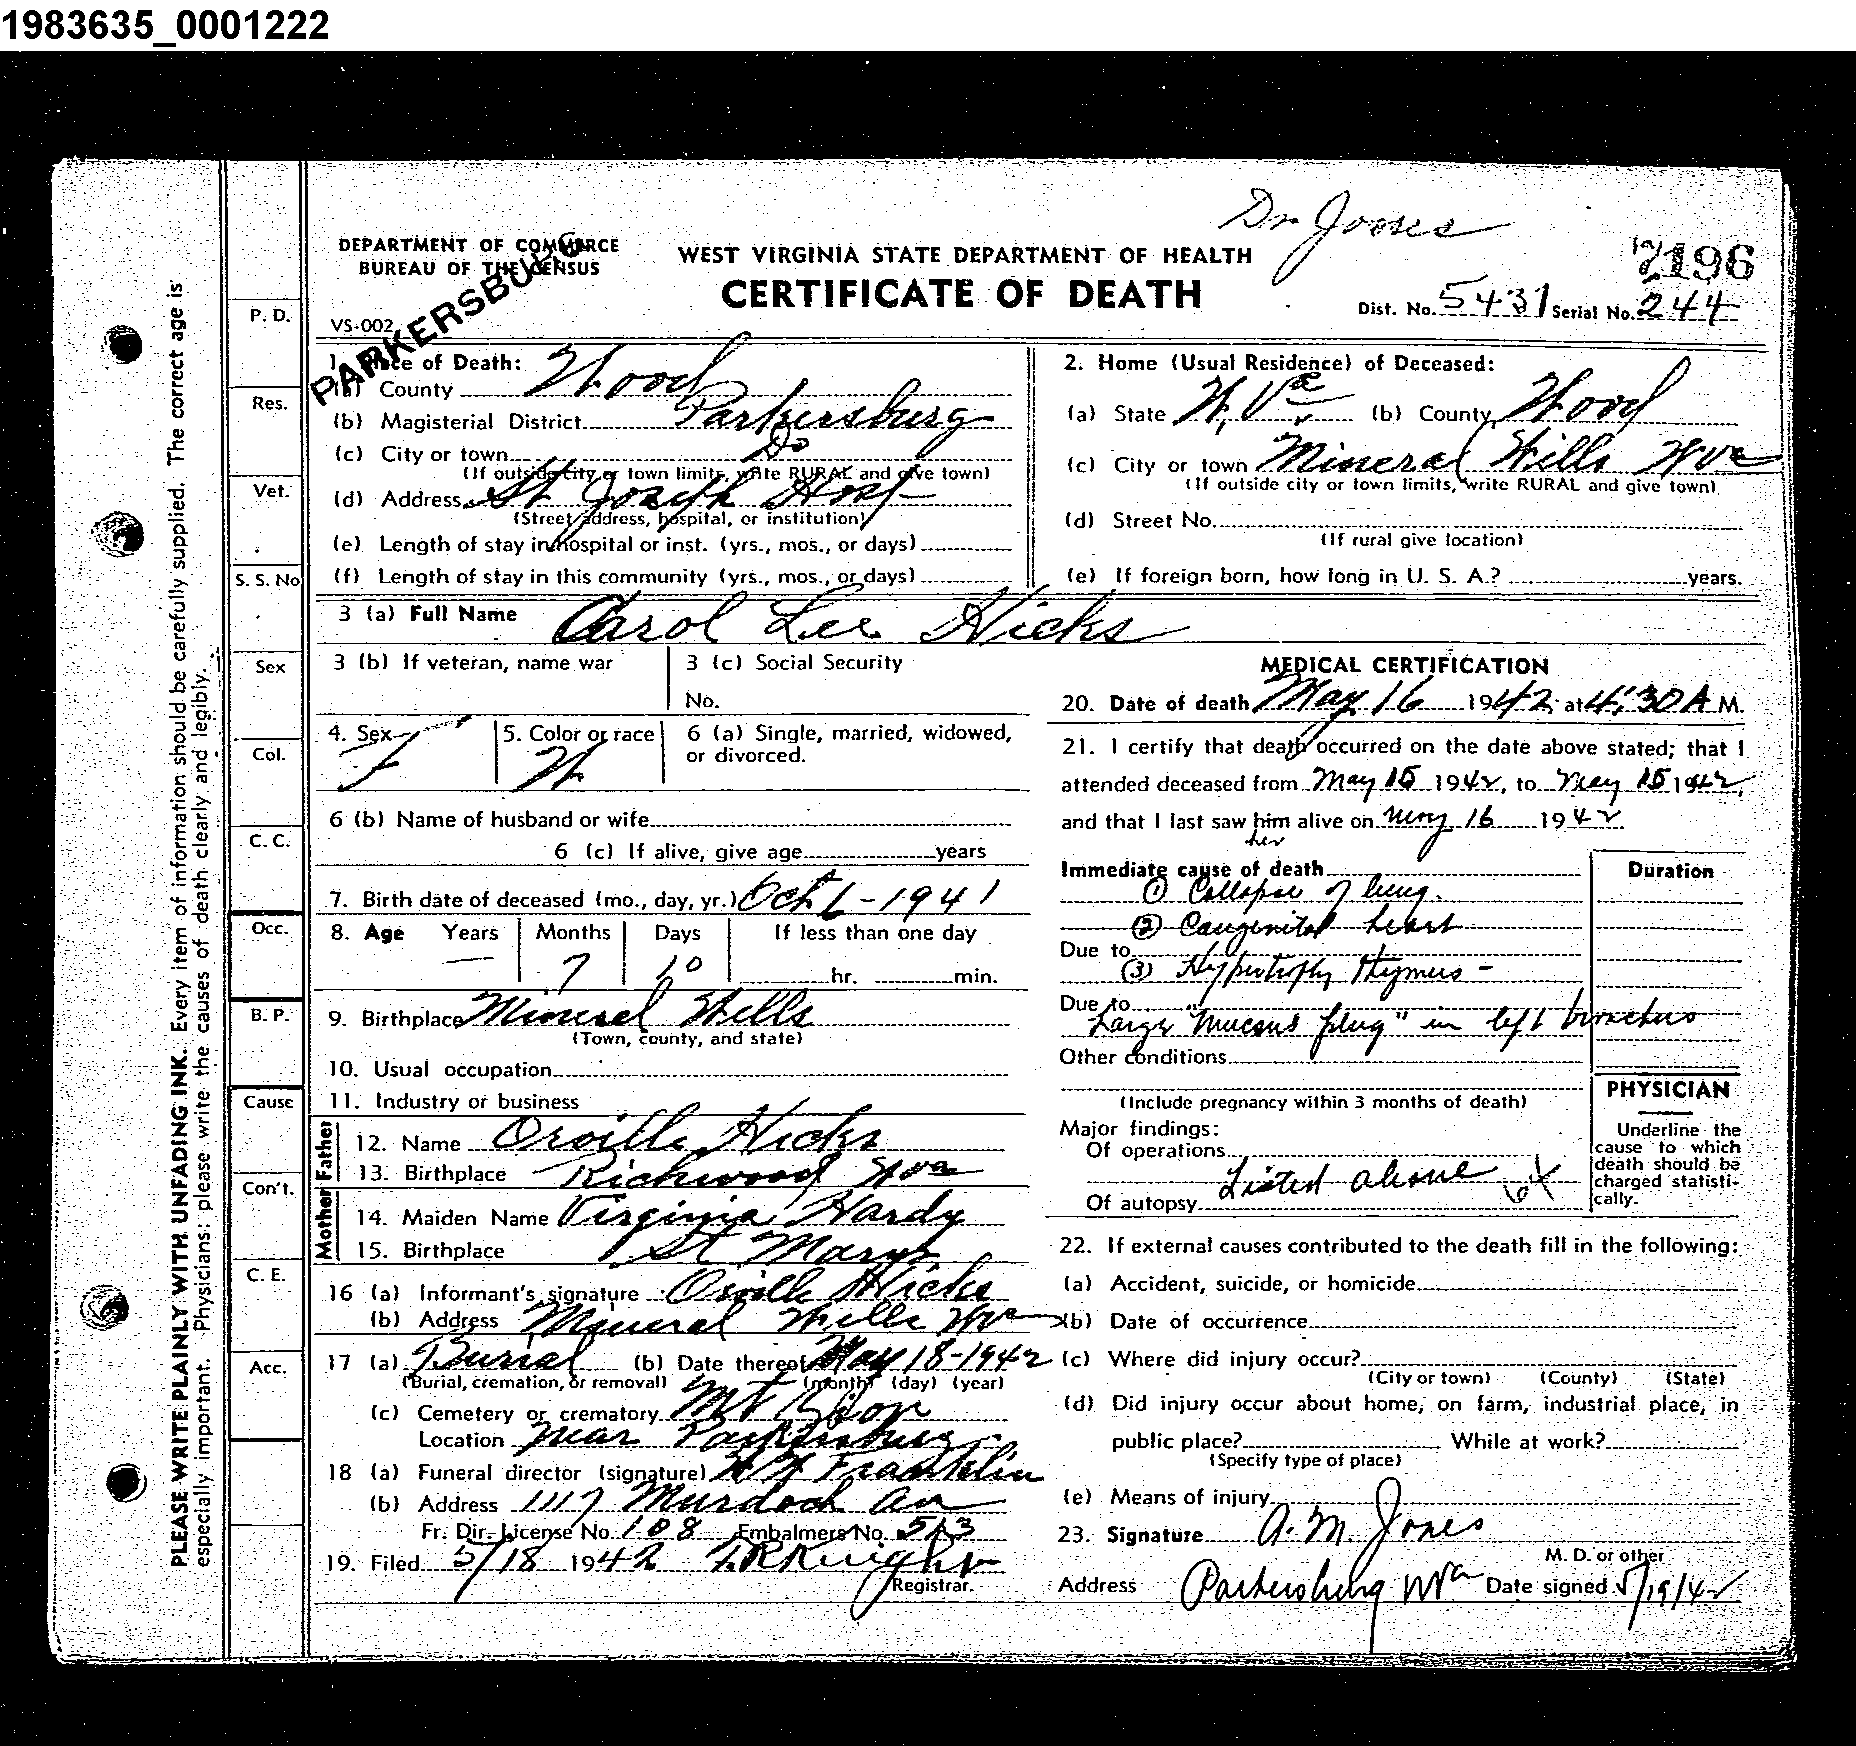 1983635_0001222
Dr Jones
DEPARTMENT OF COMMERCE
BUREAU OF THE CENSUS
WEST VIRGINIA STATE DEPARTMENT OF HEALTH
CERTIFICATE OF DEATH
7196
Dist. No. 5431 Serial No. 244
VS-002
PARKERSBURG
1. Place of Death:
(a) County Wood
(b) Magisterial District Parkersburg
(c) City or town Do
(If outside city or town limits, write RURAL and give town)
(d) Address St Joseph Hosp
(Street address, hospital, or institution)
(e) Length of stay in hospital or inst. (yrs., mos., or days)
(f) Length of stay in this community (yrs., mos., or days)
2. Home (Usual Residence) of Deceased:
(a) State W. Va (b) County Wood
(c) City or town Mineral Wells Wva
(If outside city or town limits, write RURAL and give town)
(d) Street No.
(If rural give location)
(e) If foreign born, how long in U. S. A.? years.
3 (a) Full Name Carol Lee Hicks
3 (b) If veteran, name war
3 (c) Social Security
No.
4. Sex F
5. Color or race W.
6 (a) Single, married, widowed,
or divorced.
6 (b) Name of husband or wife
6 (c) If alive, give age years
7. Birth date of deceased (mo., day, yr.) Oct 6-1941
8. Age Years Months Days If less than one day
— 7 10 hr. min.
9. Birthplace Mineral Wells
(Town, county, and state)
10. Usual occupation
11. Industry or business
Father
12. Name Orville Hicks
13. Birthplace Richwood Wva
Mother
14. Maiden Name Virginia Hardy
15. Birthplace St Marys
16 (a) Informant's signature Orville Hicks
(b) Address Mineral Wells Wva
17 (a) Burial (b) Date thereof May 18-1942
(Burial, cremation, or removal) (month) (day) (year)
(c) Cemetery or crematory Mt Zion
Location Near Parkersburg
18 (a) Funeral director (signature) Franklin
(b) Address 1117 Murdoch Av
Fr. Dir. License No. 108 Embalmers No. 513
19. Filed 5/18 1942 T.R.Knight
Registrar.
MEDICAL CERTIFICATION
20. Date of death May 16 1942 at 4:30 A M.
21. I certify that death occurred on the date above stated; that I
attended deceased from May 15 1942, to May 15 1942,
and that I last saw him alive on May 16 1942
her
Immediate cause of death
Duration
(1) Collapse of lung.
(2) Congenital heart
Due to
(3) Hypertrophy thymus -
Due to
Large "Mucous plug" in left bronchus
Other conditions
(Include pregnancy within 3 months of death)
Major findings:
Of operations
Of autopsy Listed above
PHYSICIAN
Underline the
cause to which
death should be
charged statisti-
cally.
22. If external causes contributed to the death fill in the following:
(a) Accident, suicide, or homicide
(b) Date of occurrence
(c) Where did injury occur?
(City or town) (County) (State)
(d) Did injury occur about home, on farm, industrial place, in
public place? While at work?
(Specify type of place)
(e) Means of injury
23. Signature A. M. Jones
M. D. or other
Address Parkersburg WVa Date signed 5/19/42
P. D.
Res.
Vet.
S. S. No
Sex
Col.
C. C.
Occ.
B. P.
Cause
Con't.
C. E.
Acc.
PLEASE WRITE PLAINLY WITH UNFADING INK. Every item of information should be carefully supplied. The correct age is
especially important. Physicians: please write the causes of death clearly and legibly.